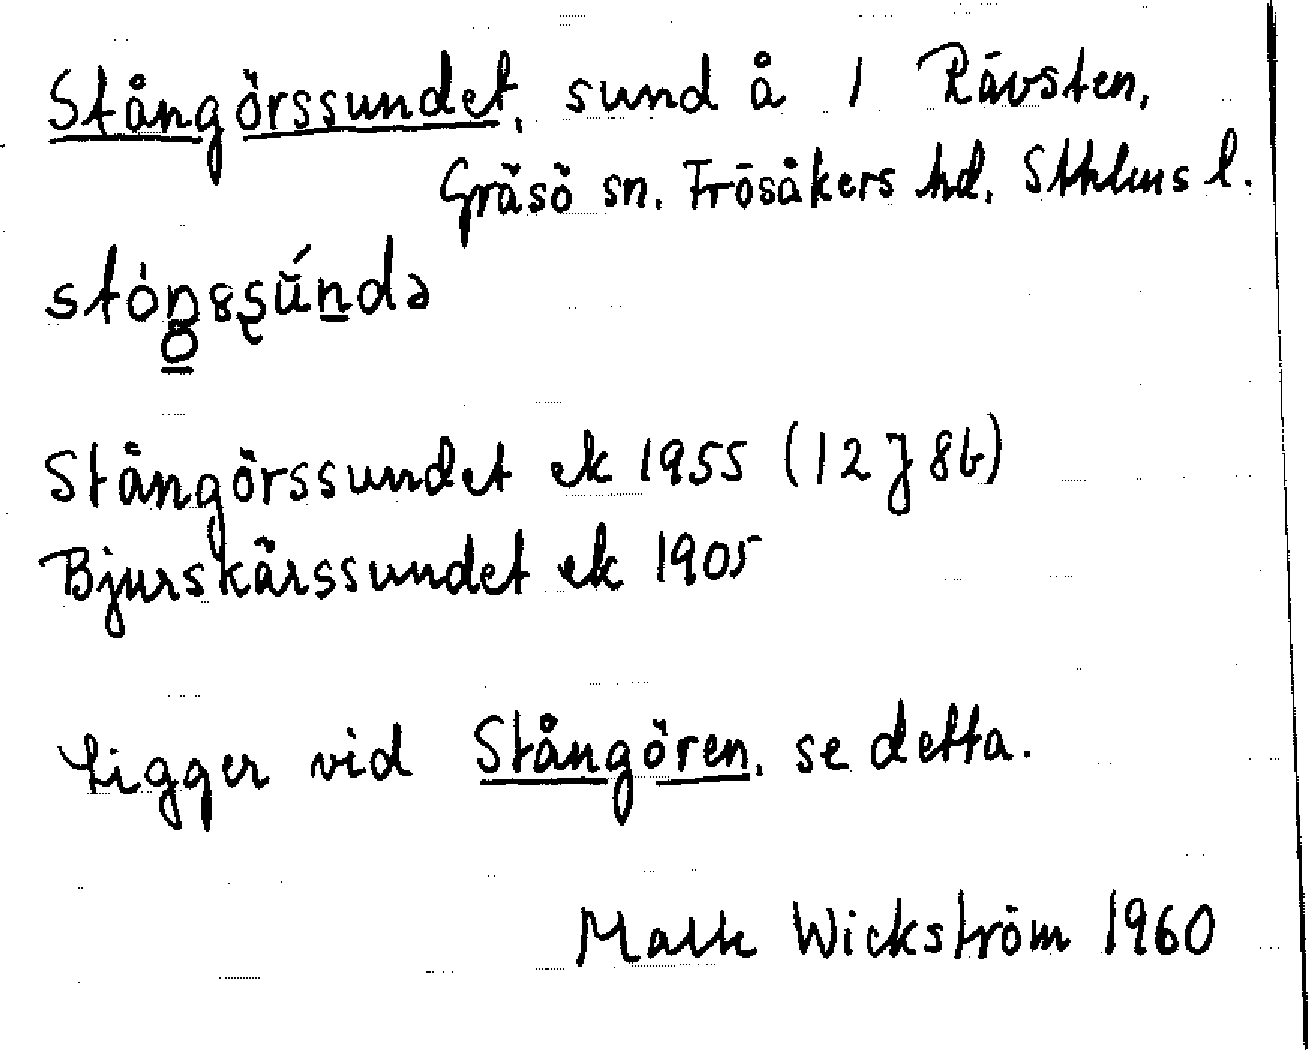 Stångörssundet, sund å 1 Rävsten,
Gräsö sn. Frösåkers hd, Sthlms l.
Stångörssundet ek 1955 (12 J 8b)
Bjurskärssundet ek 1905
Ligger vid Stångören, se detta.
Wickström 1960